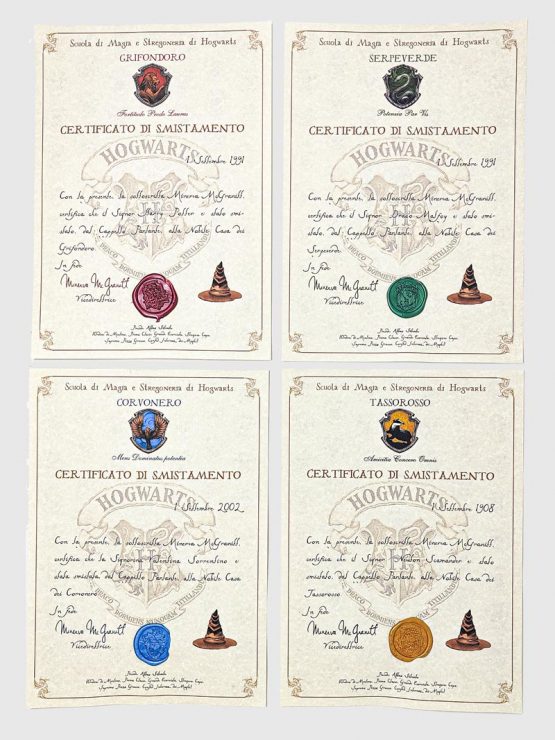 Scuola di Magia e Stregoneria di Hogwarts
GRIFONDORO
CERTIFICATO DI SMISTAMENTO
HOGWARTS
1 Settembre 1991
Con la presente, la sottoscritta Minerva McGranitt,
certifica che il Signor Harry Potter è stato smi-
stato, dal Cappello Parlante, alla Nobile Casa dei
Grifondoro.
In fede
Minerva McGranitt
Vicedirettrice
Preside: Albus Silente
Scuola di Magia e Stregoneria di Hogwarts
SERPEVERDE
CERTIFICATO DI SMISTAMENTO
HOGWARTS
1 Settembre 1991
Con la presente, la sottoscritta Minerva McGranitt,
certifica che il Signor Draco Malfoy è stato smi-
stato, dal Cappello Parlante, alla Nobile Casa dei
Serpeverde.
In fede
Minerva McGranitt
Vicedirettrice
Preside: Albus Silente
Scuola di Magia e Stregoneria di Hogwarts
CORVONERO
CERTIFICATO DI SMISTAMENTO
HOGWARTS
1 Settembre 2002
Con la presente, la sottoscritta Minerva McGranitt,
certifica che la Signorina Valentina Sorrentino è
stata smistata, dal Cappello Parlante, alla Nobile Casa
dei Corvonero.
In fede
Minerva McGranitt
Vicedirettrice
Preside: Albus Silente
Scuola di Magia e Stregoneria di Hogwarts
TASSOROSSO
CERTIFICATO DI SMISTAMENTO
HOGWARTS
1 Settembre 1908
Con la presente, la sottoscritta Minerva McGranitt,
certifica che il Signor Newton Scamander è stato
smistato, dal Cappello Parlante, alla Nobile Casa dei
Tassorosso.
In fede
Minerva McGranitt
Vicedirettrice
Preside: Albus Silente